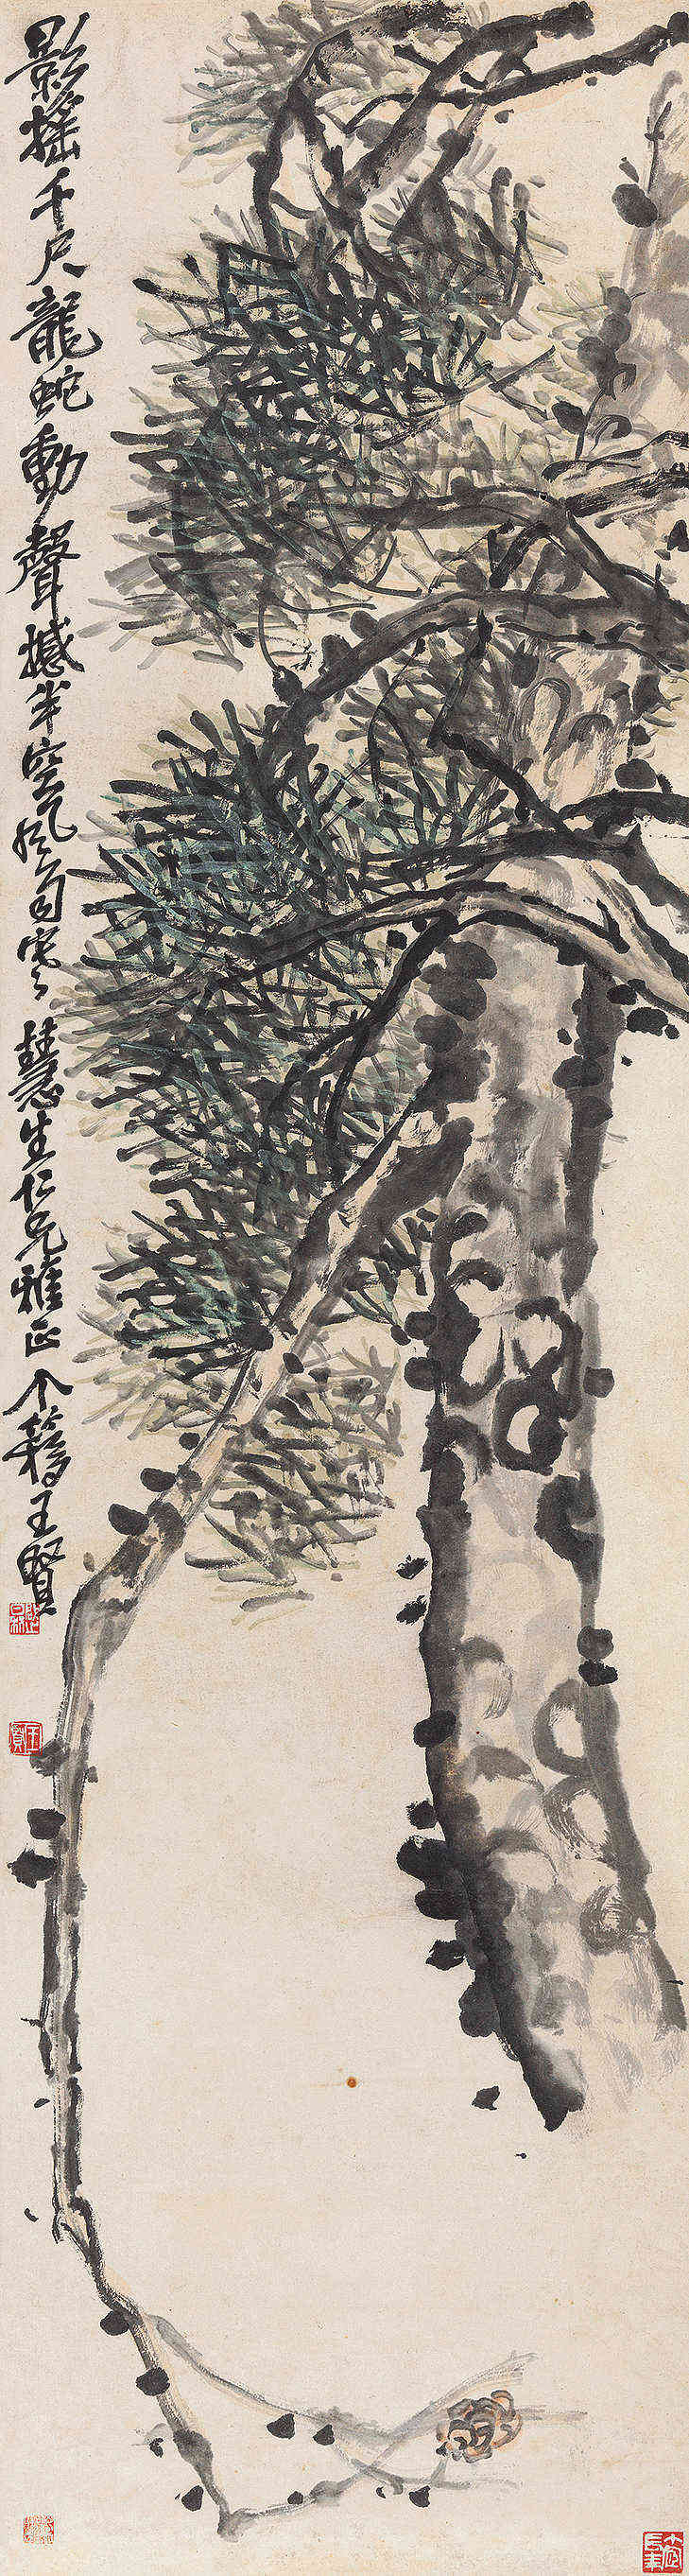 影搖千尺龍蛇動聲撼半空風雨寒 慧生仁兄雅正 个簃王賢
王賢